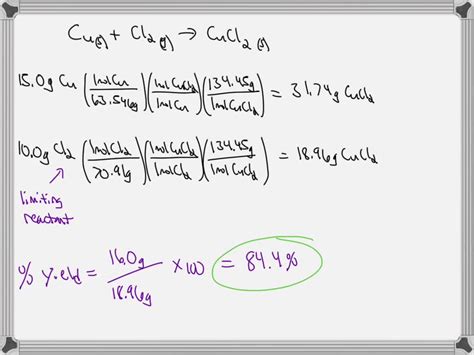 Cu(s) + Cl2(g) → CuCl2(s)
15.0g Cu (1mol Cu / 63.546g)(1mol CuCl2 / 1mol Cu)(134.45g / 1mol CuCl2) = 31.74g CuCl2
10.0g Cl2 (1mol Cl2 / 70.91g)(1mol CuCl2 / 1mol Cl2)(134.45g / 1mol CuCl2) = 18.96g CuCl2
limiting
reactant
% yield = 16.0g / 18.96g × 100 = 84.4%